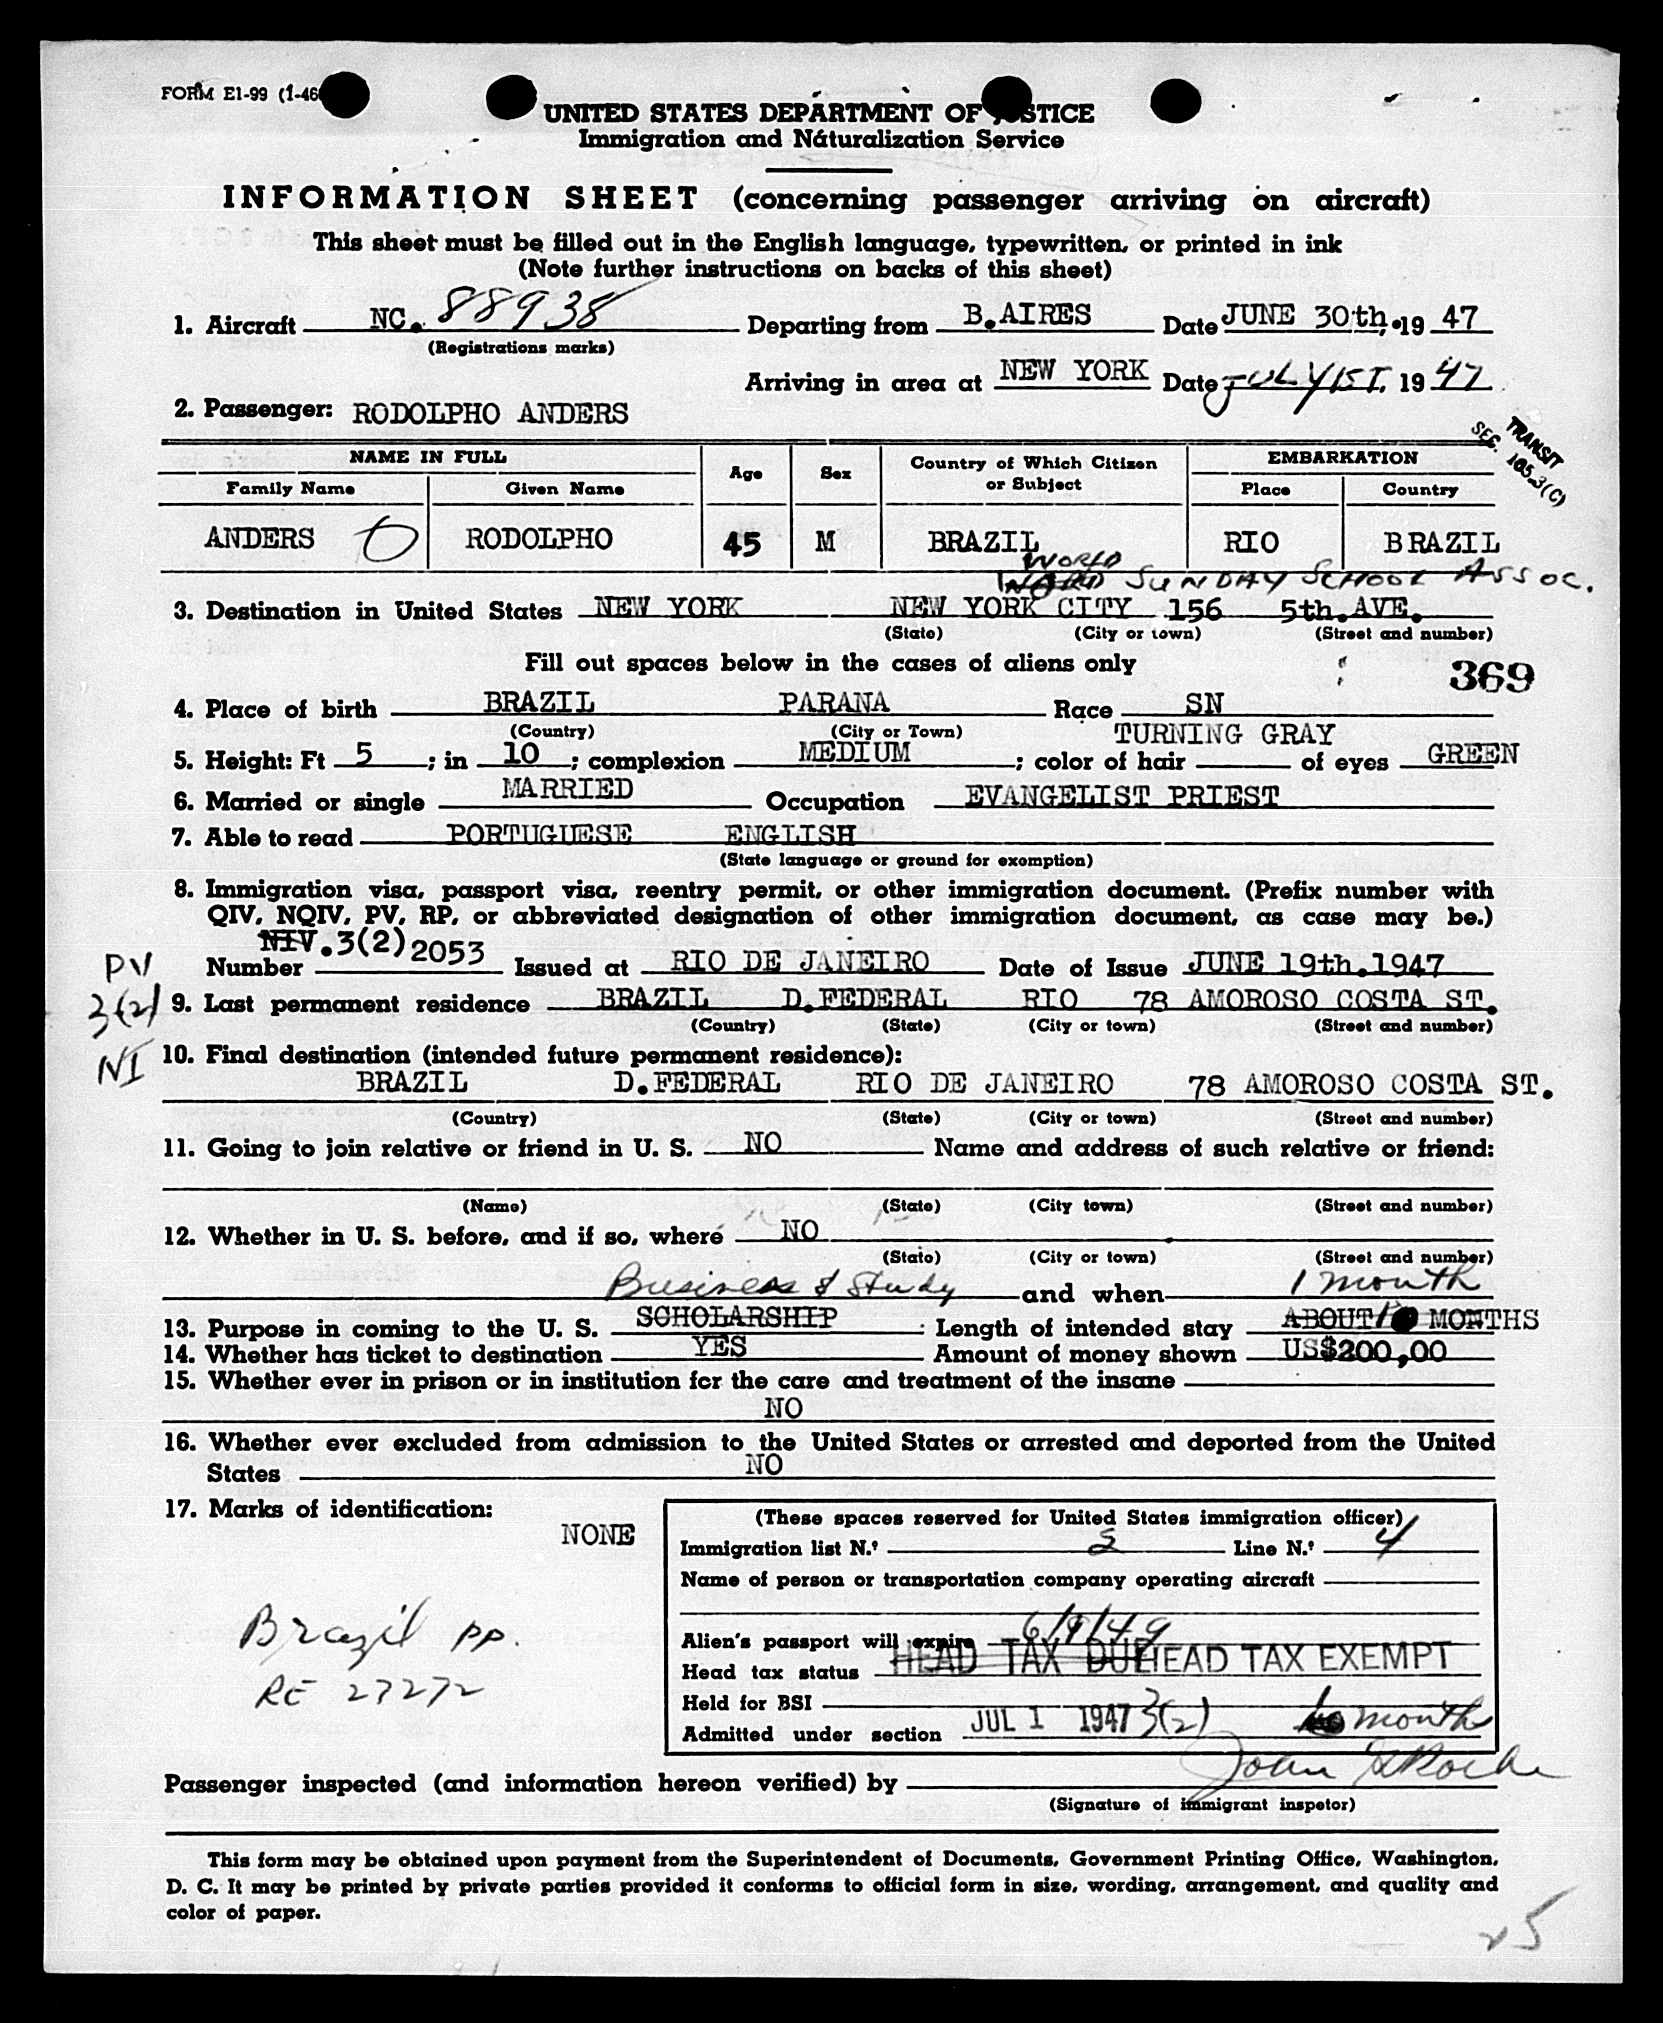 FORM E1-99 (1-46
UNITED STATES DEPARTMENT OF JUSTICE
Immigration and Naturalization Service
INFORMATION SHEET (concerning passenger arriving on aircraft)
This sheet must be filled out in the English language, typewritten, or printed in ink
(Note further instructions on backs of this sheet)
1. Aircraft NC. 88938 Departing from B.AIRES Date JUNE 30th, 19 47
(Registrations marks)
Arriving in area at NEW YORK Date JULY 1ST. 19 47
2. Passenger: RODOLPHO ANDERS
TRANSIT
SEC. 165.3(C)
NAME IN FULL Age Sex Country of Which Citizen or Subject EMBARKATION
Family Name Given Name Place Country
ANDERS RODOLPHO 45 M BRAZIL RIO BRAZIL
WORLD
WORLD SUNDAY SCHOOL ASSOC.
3. Destination in United States NEW YORK NEW YORK CITY 156 5th.AVE.
(State) (City or town) (Street and number)
Fill out spaces below in the cases of aliens only
369
4. Place of birth BRAZIL PARANA Race SN
(Country) (City or Town) TURNING GRAY
5. Height: Ft 5 ; in 10 ; complexion MEDIUM ; color of hair of eyes GREEN
6. Married or single MARRIED Occupation EVANGELIST PRIEST
7. Able to read PORTUGUESE ENGLISH
(State language or ground for exomption)
8. Immigration visa, passport visa, reentry permit, or other immigration document. (Prefix number with
QIV, NQIV, PV, RP, or abbreviated designation of other immigration document, as case may be.)
Number NIV.3(2)2053 Issued at RIO DE JANEIRO Date of Issue JUNE 19th.1947
PV
3(2)
NI
9. Last permanent residence BRAZIL D.FEDERAL RIO 78 AMOROSO COSTA ST.
(Country) (State) (City or town) (Street and number)
10. Final destination (intended future permanent residence):
BRAZIL D.FEDERAL RIO DE JANEIRO 78 AMOROSO COSTA ST.
(Country) (State) (City or town) (Street and number)
11. Going to join relative or friend in U. S. NO Name and address of such relative or friend:
(Name) (State) (City town) (Street and number)
12. Whether in U. S. before, and if so, where NO
(State) (City or town) (Street and number)
Business & Study and when 1 month
13. Purpose in coming to the U. S. SCHOLARSHIP Length of intended stay ABOUT MONTHS
14. Whether has ticket to destination YES Amount of money shown US$200,00
15. Whether ever in prison or in institution for the care and treatment of the insane
NO
16. Whether ever excluded from admission to the United States or arrested and deported from the United
States NO
17. Marks of identification:
NONE
(These spaces reserved for United States immigration officer)
Immigration list N.º 2 Line N.º 4
Name of person or transportation company operating aircraft
Alien's passport will expire 6/9/49
Head tax status HEAD TAX DUE HEAD TAX EXEMPT
Held for BSI
Admitted under section JUL 1 1947 3(2) month
Brazil pp.
RE 27272
Passenger inspected (and information hereon verified) by John
(Signature of immigrant inspetor)
This form may be obtained upon payment from the Superintendent of Documents, Government Printing Office, Washington,
D. C. It may be printed by private parties provided it conforms to official form in size, wording, arrangement, and quality and
color of paper.
25